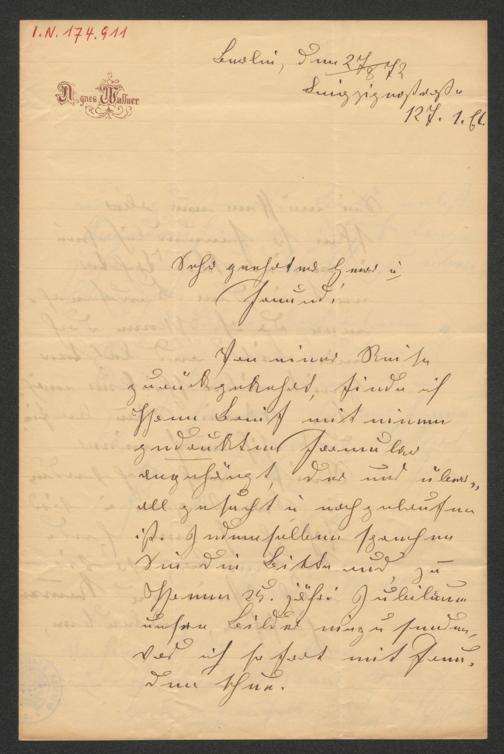 I.N. 174.911
Agnes Wallner
Berlin, den 27/8 72
Leipzigerstraße
127. 1. Et.
Sehr geehrter Herr u
Freund!
Von einer Reise
zurückgekehrt, finde ich
Ihren Brief mit einem
gedruckten Formular
angehängt, der uns über-
all gesucht u nachgelaufen
ist. In demselben sprechen
Sie die Bitte aus, zu
Ihrem 25. jähri Jubiläum
unsere Bilder einzusenden,
was ich sofort mit Freu-
den thue.